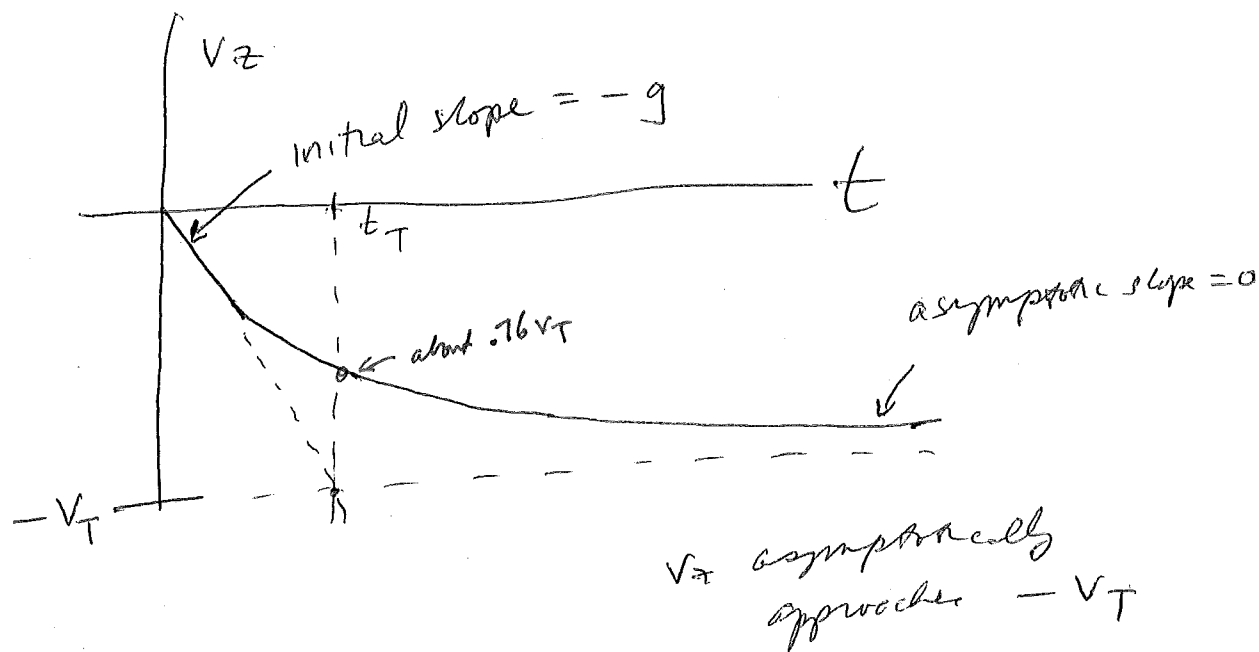 vz
initial slope = - g
t
t_T
asymptotic slope = 0
about .76 v_T
- V_T
vz asymptotically
approaches - V_T